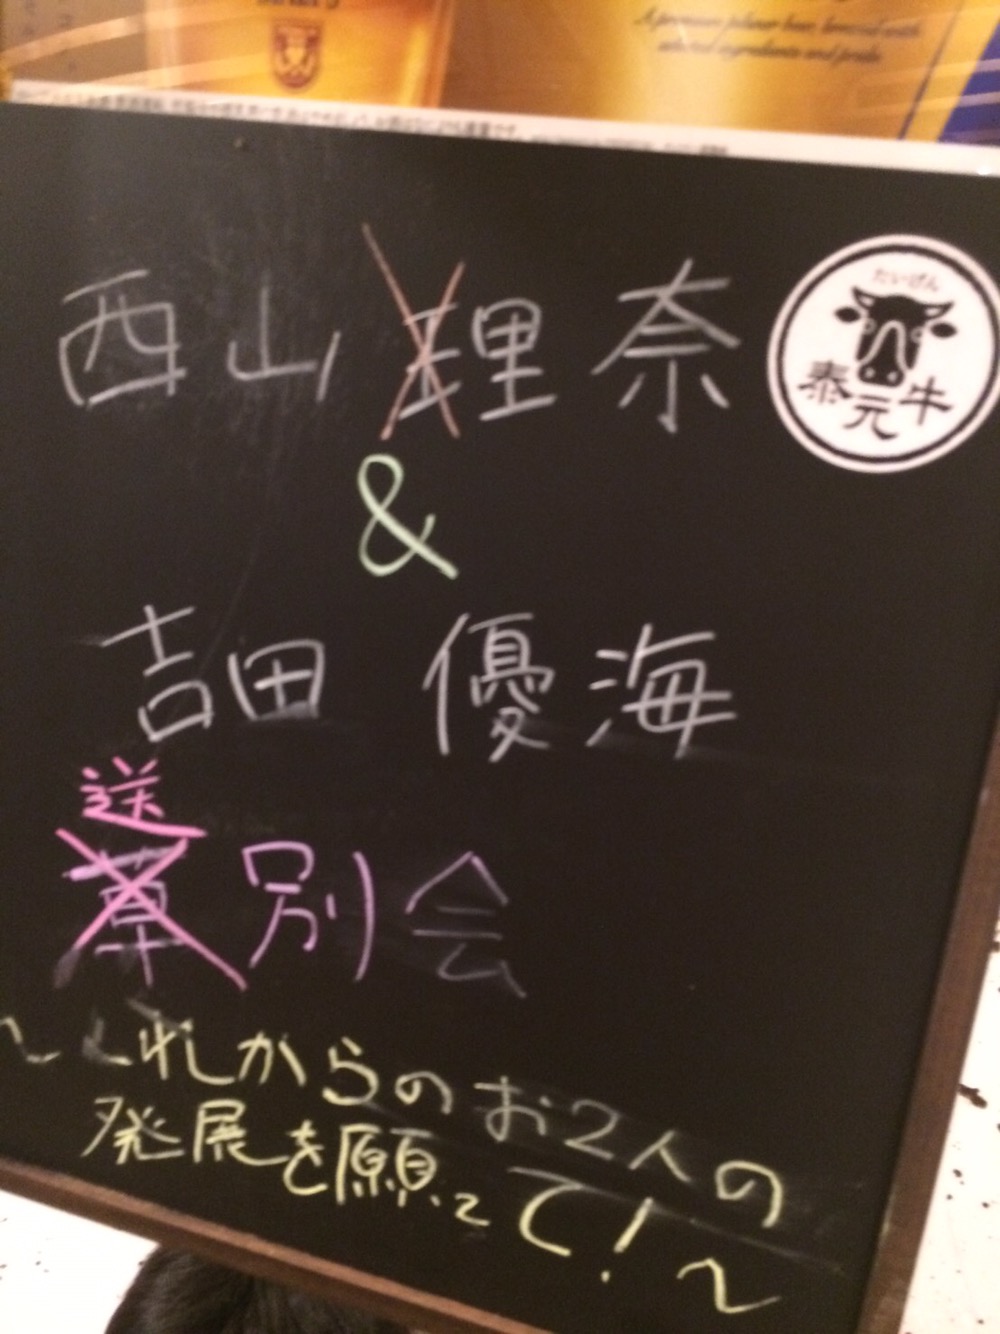 A premium pilsner beer, brewed with
selected ingredients and pride.
西山理奈
たいげん
泰元牛
&
吉田 優海
送
草別会
～これからのお2人の
発展を願って!～